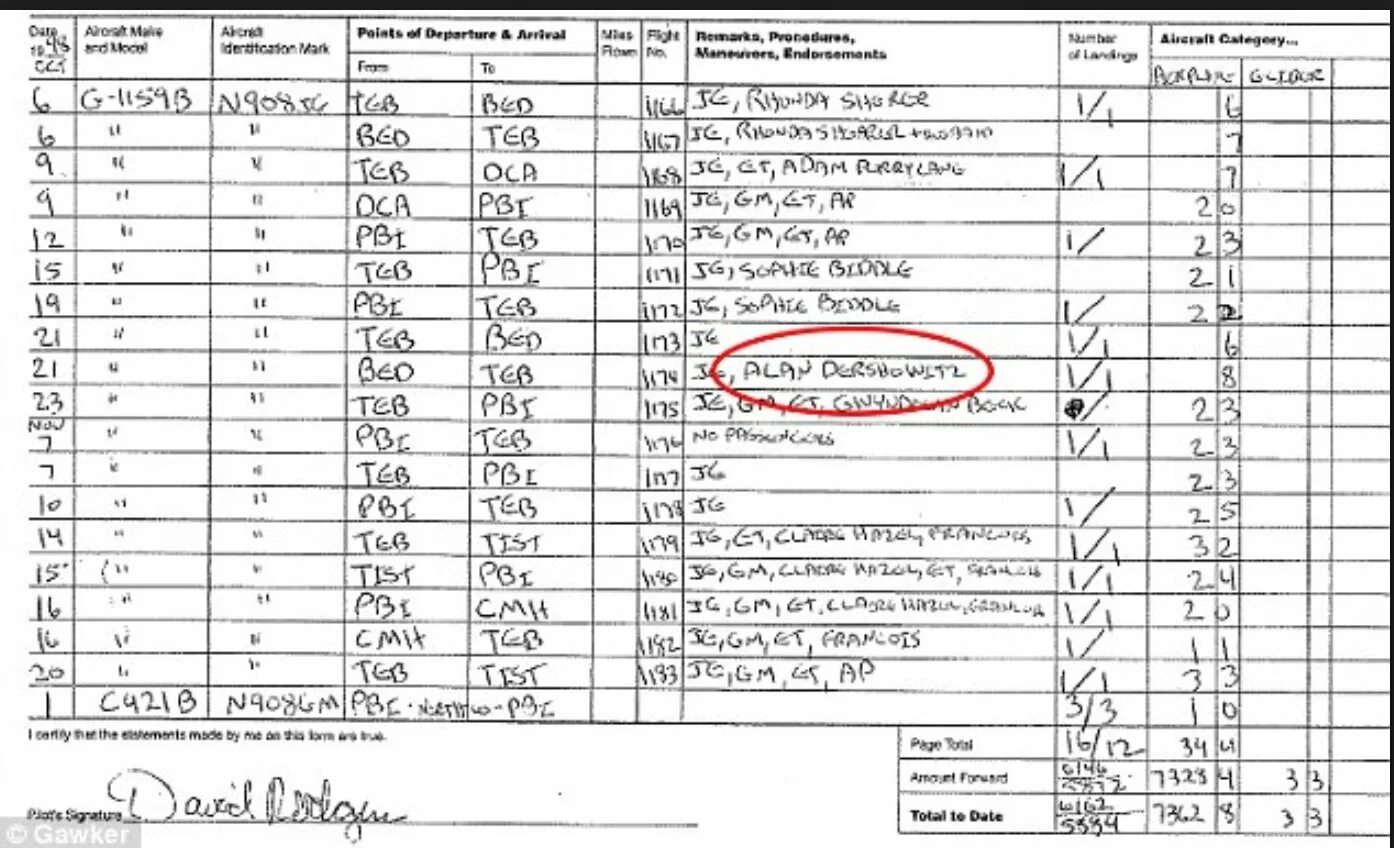 Date 1998 Aircraft Make and Model Aircraft Identification Mark Points of Departure & Arrival Miles Flown Flight No. Remarks, Procedures, Maneuvers, Endorsements Number of Landings Aircraft Category...
OCT From To AIRPLANE GLIDER
6 G-1159B N908JE TEB BED 1166 JE, RHONDA SHERER 1/1 6
6 " " BED TEB 1167 JE, RHONDA SHERER 7
9 " " TEB DCA 1168 JE, ET, ADAM PERRY LANG 1/1 7
9 " " DCA PBI 1169 JE, GM, ET, AP 2 0
12 " " PBI TEB 1170 JE, GM, ET, AP 1/ 2 3
15 " " TEB PBI 1171 JE, SOPHIE BIDDLE 2 1
19 " " PBI TEB 1172 JE, SOPHIE BIDDLE 1/ 2 2
21 " " TEB BED 1173 JE 1/1 6
21 " " BED TEB 1174 JE, ALAN DERSHOWITZ 1/1 8
23 " " TEB PBI 1175 JE, GM, ET, BECK / 2 3
NOV
7 " " PBI TEB 1176 NO PASSENGERS 1/1 2 3
7 " " TEB PBI 1177 JE 2 3
10 " " PBI TEB 1178 JE 1/ 2 5
14 " " TEB TIST 1179 JE, ET, CLAIRE HAZEL, FRANCOIS 1/1 3 2
15 " " TIST PBI 1180 JE, GM, CLAIRE HAZEL, ET, FRANCOIS 1/1 2 4
16 " " PBI CMH 1181 JE, GM, ET, CLAIRE HAZEL, FRANCOIS 1/1 2 0
16 " " CMH TEB 1182 JE, GM, ET, FRANCOIS 1/ 1 1
20 " " TEB TIST 1183 JE, GM, ET, AP 1/1 3 3
1 C421B N908GM PBI - PBI 3/3 1 0
I certify that the statements made by me on this form are true.
Page Total 16/12 34 4
Amount Forward 6146 5872 7328 4 3 3
Pilot's Signature David
Total to Date 6162 5884 7362 8 3 3
© Gawker